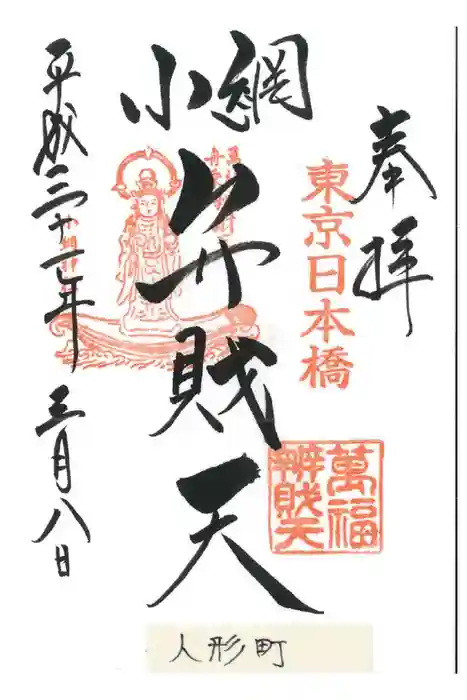 奉拝
東京日本橋
萬福
辨財天
小網
弁財天
平成三十一年 三月八日
人形町